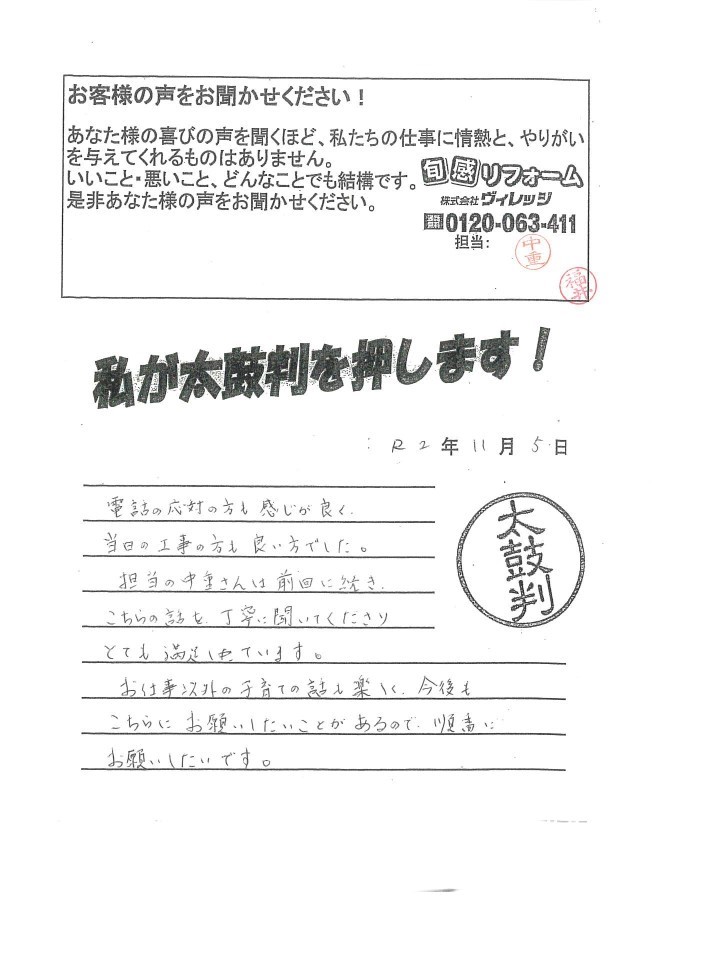 お客様の声をお聞かせください！
あなた様の喜びの声を聞くほど、私たちの仕事に情熱と、やりがい
を与えてくれるものはありません。
いいこと・悪いこと、どんなことでも結構です。
是非あなた様の声をお聞かせください。
旬感リフォーム
株式会社ヴィレッジ
0120-063-411
担当：
中重
私が太鼓判を押します！
R2年11月5日
電話の応対の方も感じが良く、
当日の工事の方も良い方でした。
担当の中重さんは前回に続き、
こちらの話を、丁寧に聞いてくださり
とても満足しています。
お仕事以外の子育ての話も楽しく、今後も
こちらにお願いしたいことがあるので、順番に
お願いしたいです。
太鼓判